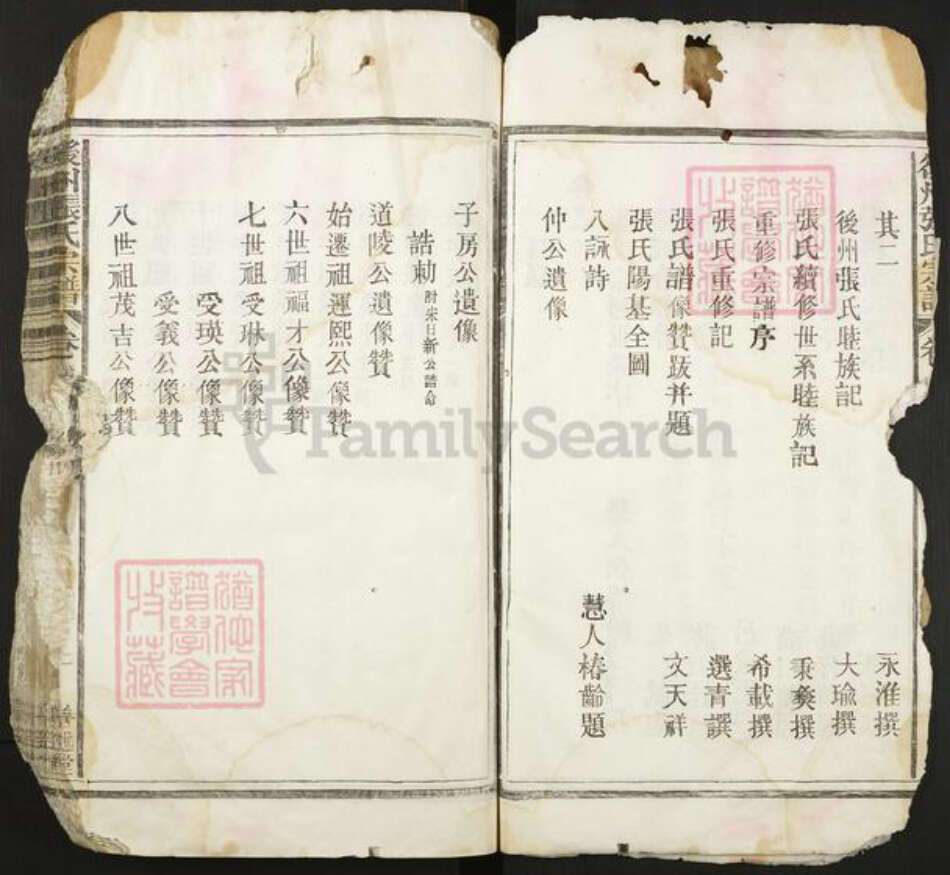 其二 永淮撰
後州張氏睦族記 大瑜撰
張氏續修世系睦族記 秉彝撰
重修宗譜序 希載撰
張氏重修記 選青譔
張氏譜像贊跋并題 文天祥
張氏陽基全圖
八詠詩 慧人椿齡題
仲公遺像
子房公遺像
誥勅 附宋日新公誥命
道陵公遺像贊
始遷祖運熙公像贊
六世祖福才公像贊
七世祖受琳公像贊
受瑛公像贊
受義公像贊
八世祖茂吉公像贊
後州張氏宗譜 卷
猶他家譜學會收藏
猶他家譜學會收藏
FamilySearch